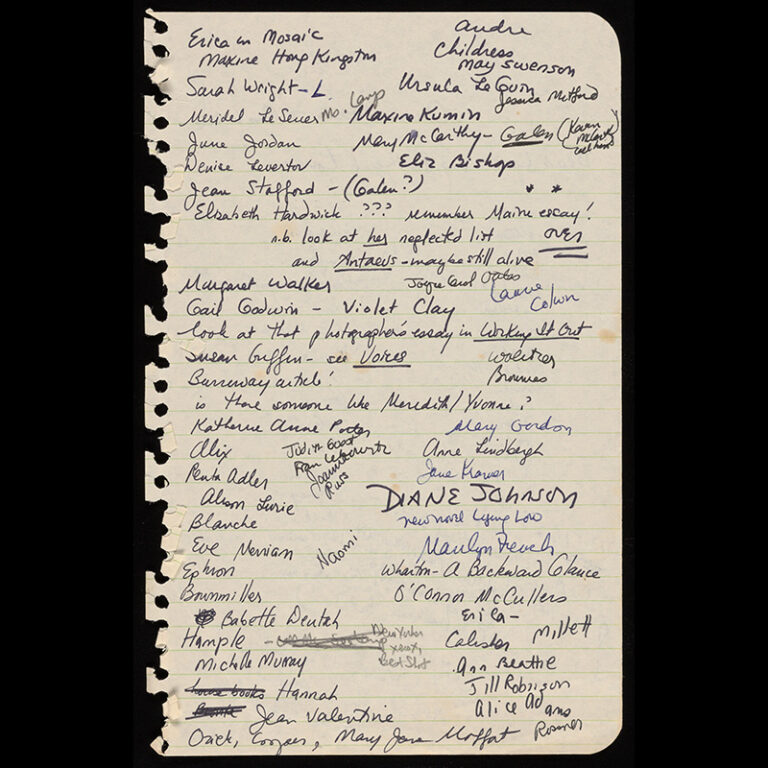 Erica in Mosaic
Maxine Hong Kingston
andre
Childress
May Swenson
Sarah Wright - L
Ursula LeGuin
Jessica Mitford
Meridel LeSeuer
Maxine Kumin
June Jordan
Mary McCarthy - Galen
Denise Levertov
Eliz Bishop
Jean Stafford - (Galen?)
* *
Elizabeth Hardwick ??? remember Maine essay!
n.b. look at her neglected list
OVER
and Antaeus - maybe still alive
Margaret Walker
Joyce Carol Oates
Laurie
Colwin
Gail Godwin - Violet Clay
look at that photographer's essay in Working It Out
Susan Griffin - see Voices
Burroway article!
is there someone like Meredith/Yvonne?
Katherine Anne Porter
Mary Gordon
Alix
Judith Guest
Fran Lebowitz
Joanna
Russ
Anne Lindbergh
Renata Adler
Jane Kramer
Alison Lurie
DIANE JOHNSON
new novel Lying Low
Blanche
Eve Merriam
Naomi
Marilyn French
Ephron
Wharton - A Backward Glance
Brownmiller
O'Connor McCullers
Babette Deutsch
Erica -
Hample -
New Yorker
Calisher
Millett
Michele Murray
Ann Beattie
Hannah
Jill Robinson
Jean Valentine
Alice Adams
Ozick, Cooper, Mary Jane Moffat
Rossner